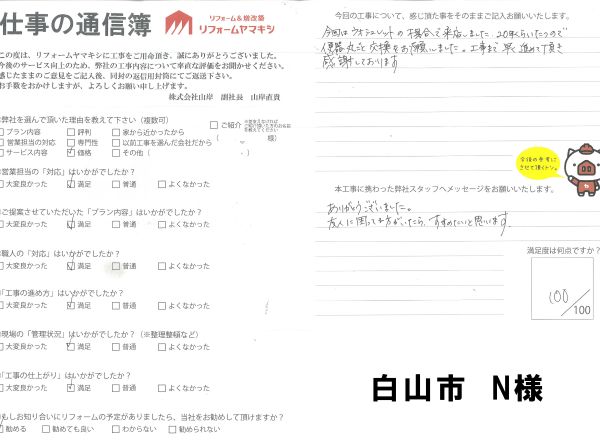 仕事の通信簿
リフォーム&増改築
リフォームヤマキシ
この度は、リフォームヤマキシに工事をご用命頂き、誠にありがとうございました。
今後のサービス向上のため、弊社の工事内容について率直な評価をお聞かせください。
感じたままのご意見をご記入後、同封の返信用封筒にてご返送下さい。
お手数をおかけしますが、よろしくお願い申し上げます。
株式会社山岸 副社長 山岸直貴
弊社を選んで頂いた理由を教えて下さい（複数可）
□ プラン内容 □ 評判 □ 家から近かったから
□ 営業担当の対応 □ 専門性 □ 以前工事を選んだ会社だから
□ サービス内容 ☑ 価格 □ その他（ ）
□ ご紹介
（ 様）
営業担当の「対応」はいかがでしたか？
□ 大変良かった ☑ 満足 □ 普通 □ よくなかった
ご提案させていただいた「プラン内容」はいかがでしたか？
□ 大変良かった ☑ 満足 □ 普通 □ よくなかった
職人の「対応」はいかがでしたか？
□ 大変良かった ☑ 満足 □ 普通 □ よくなかった
「工事の進め方」はいかがでしたか？
□ 大変良かった ☑ 満足 □ 普通 □ よくなかった
現場の「管理状況」はいかがでしたか？（※整理整頓など）
□ 大変良かった ☑ 満足 □ 普通 □ よくなかった
「工事の仕上がり」はいかがでしたか？
□ 大変良かった ☑ 満足 □ 普通 □ よくなかった
もしお知り合いにリフォームの予定がありましたら、当社をお勧めして頂けますか？
勧める □ 勧めても良い □ わからない □ 勧められない
今回の工事について、感じた事をそのままご記入お願いいたします。
今回はウォシュレットの具合で来店しました。20年くらいたつので
便器丸ごと交換をお願いしました。工事まで早く進めて頂き
感謝しております
今後の参考に
させて頂くトン。
本工事に携わった弊社スタッフへメッセージをお願いいたします。
ありがとうございました。
友人に困ってる方がいたら、すすめたいと思います。
満足度は何点ですか？
100
/100
白山市 N様